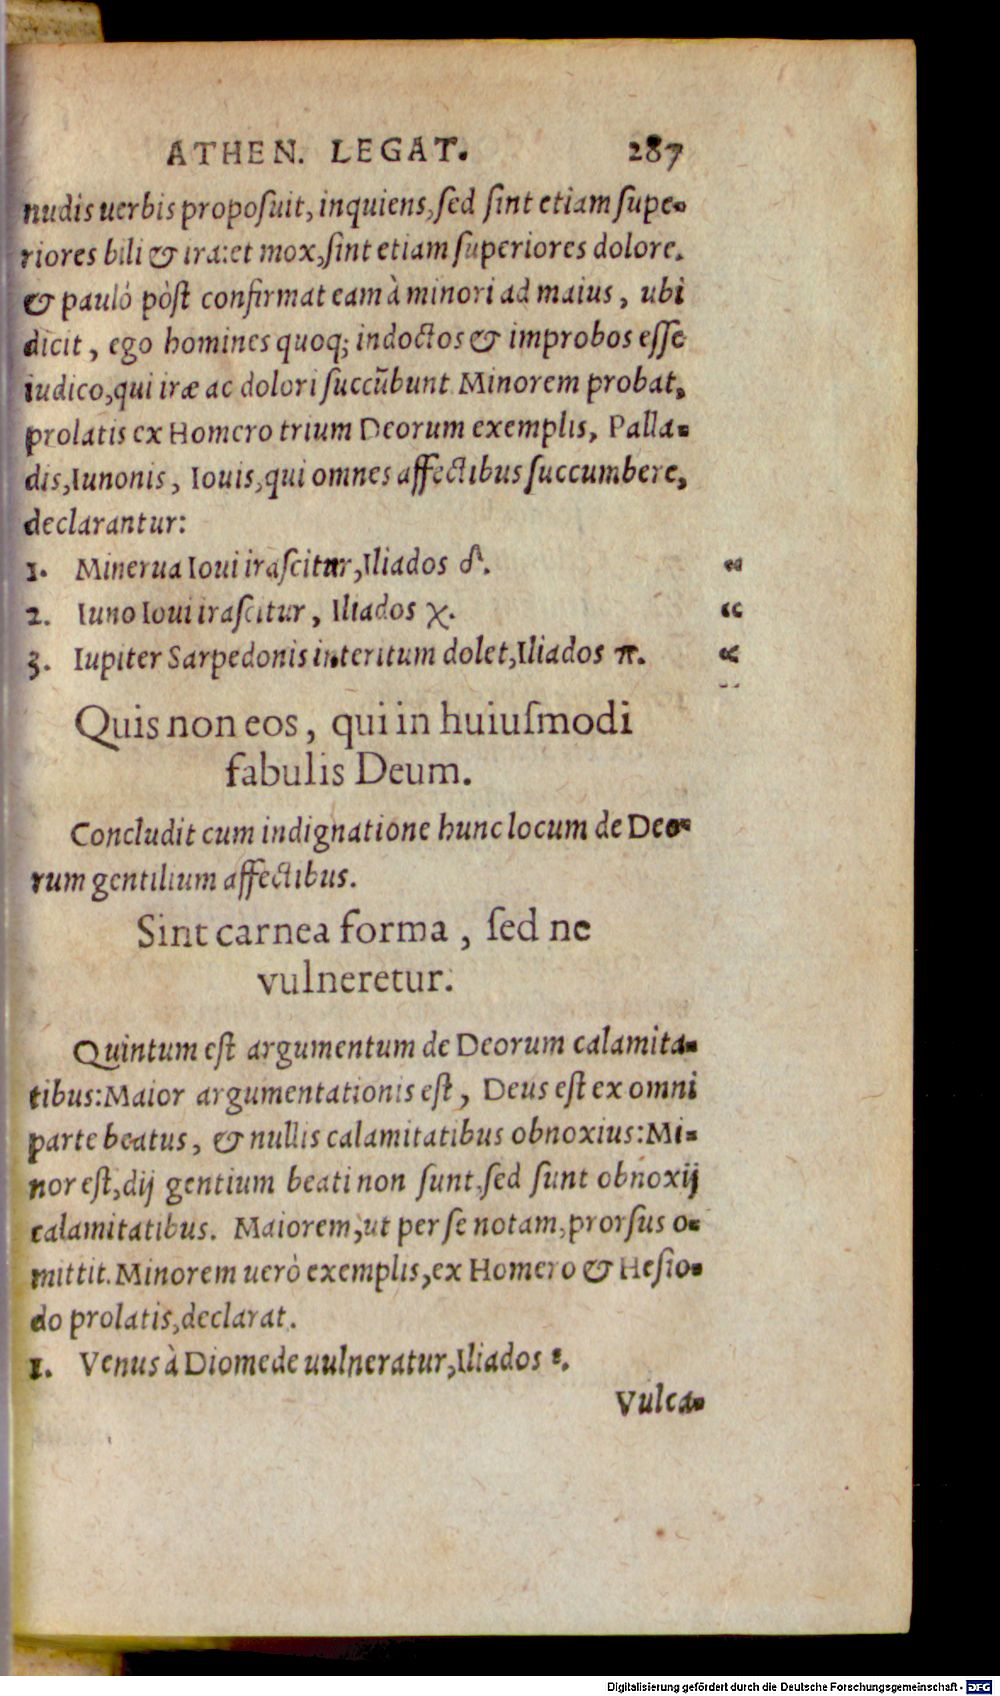 ATHEN. LEGAT. 287
nudis uerbis proposuit, inquiens, sed sint etiam supe-
riores bili & ira: et mox, sint etiam superiores dolore.
& pauló pòst confirmat eam à minori ad maius, ubi
dicit, ego homines quoq; indoctos & improbos esse
iudico, qui iræ ac dolori succūbunt. Minorem probat,
prolatis ex Homero trium Deorum exemplis, Palla-
dis, Iunonis, Iouis, qui omnes affectibus succumbere,
declarantur:
1. Minerua Ioui irascitur, Iliados δ. "
2. Iuno Ioui irascitur, Iliados χ. "
3. Iupiter Sarpedonis interitum dolet, Iliados π. "
Quis non eos, qui in huiusmodi
fabulis Deum.
Concludit cum indignatione hunc locum de Deo-
rum gentilium affectibus.
Sint carnea forma, sed ne
vulneretur.
Quintum est argumentum de Deorum calamita-
tibus: Maior argumentationis est, Deus est ex omni
parte beatus, & nullis calamitatibus obnoxius: Mi-
nor est, dij gentium beati non sunt, sed sunt obnoxij
calamitatibus. Maiorem, ut per se notam, prorsus o-
mittit. Minorem uerò exemplis, ex Homero & Hesio-
do prolatis, declarat.
1. Venus à Diomede uulneratur, Iliados ε.
Vulca-
Digitalisierung gefördert durch die Deutsche Forschungsgemeinschaft - DFG